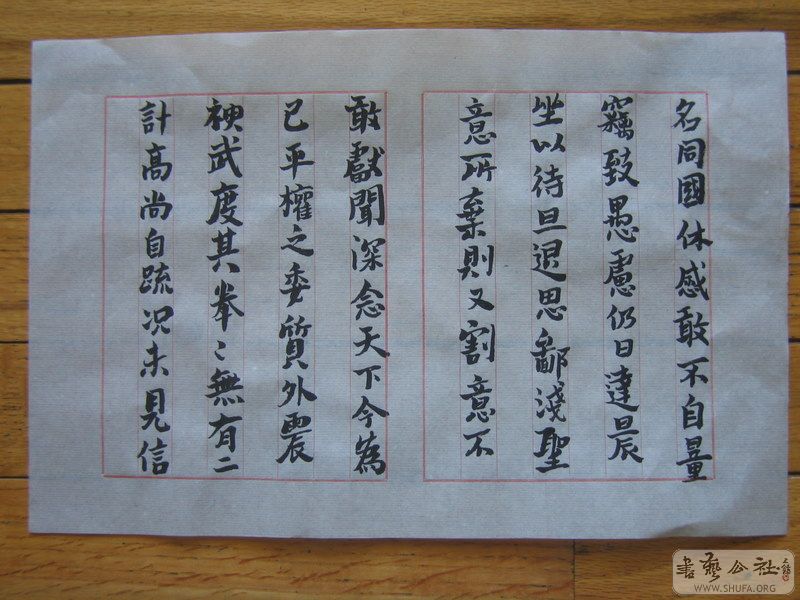 名同國休感敢不自量
竊致愚慮仍日達晨
坐以待旦退思鄙淺聖
意所棄則又割意不
敢獻聞深念天下今為
已平權之委質外震
神武度其拳〻無有二
計高尚自疏況未見信
書藝公社
WWW.SHUFA.ORG